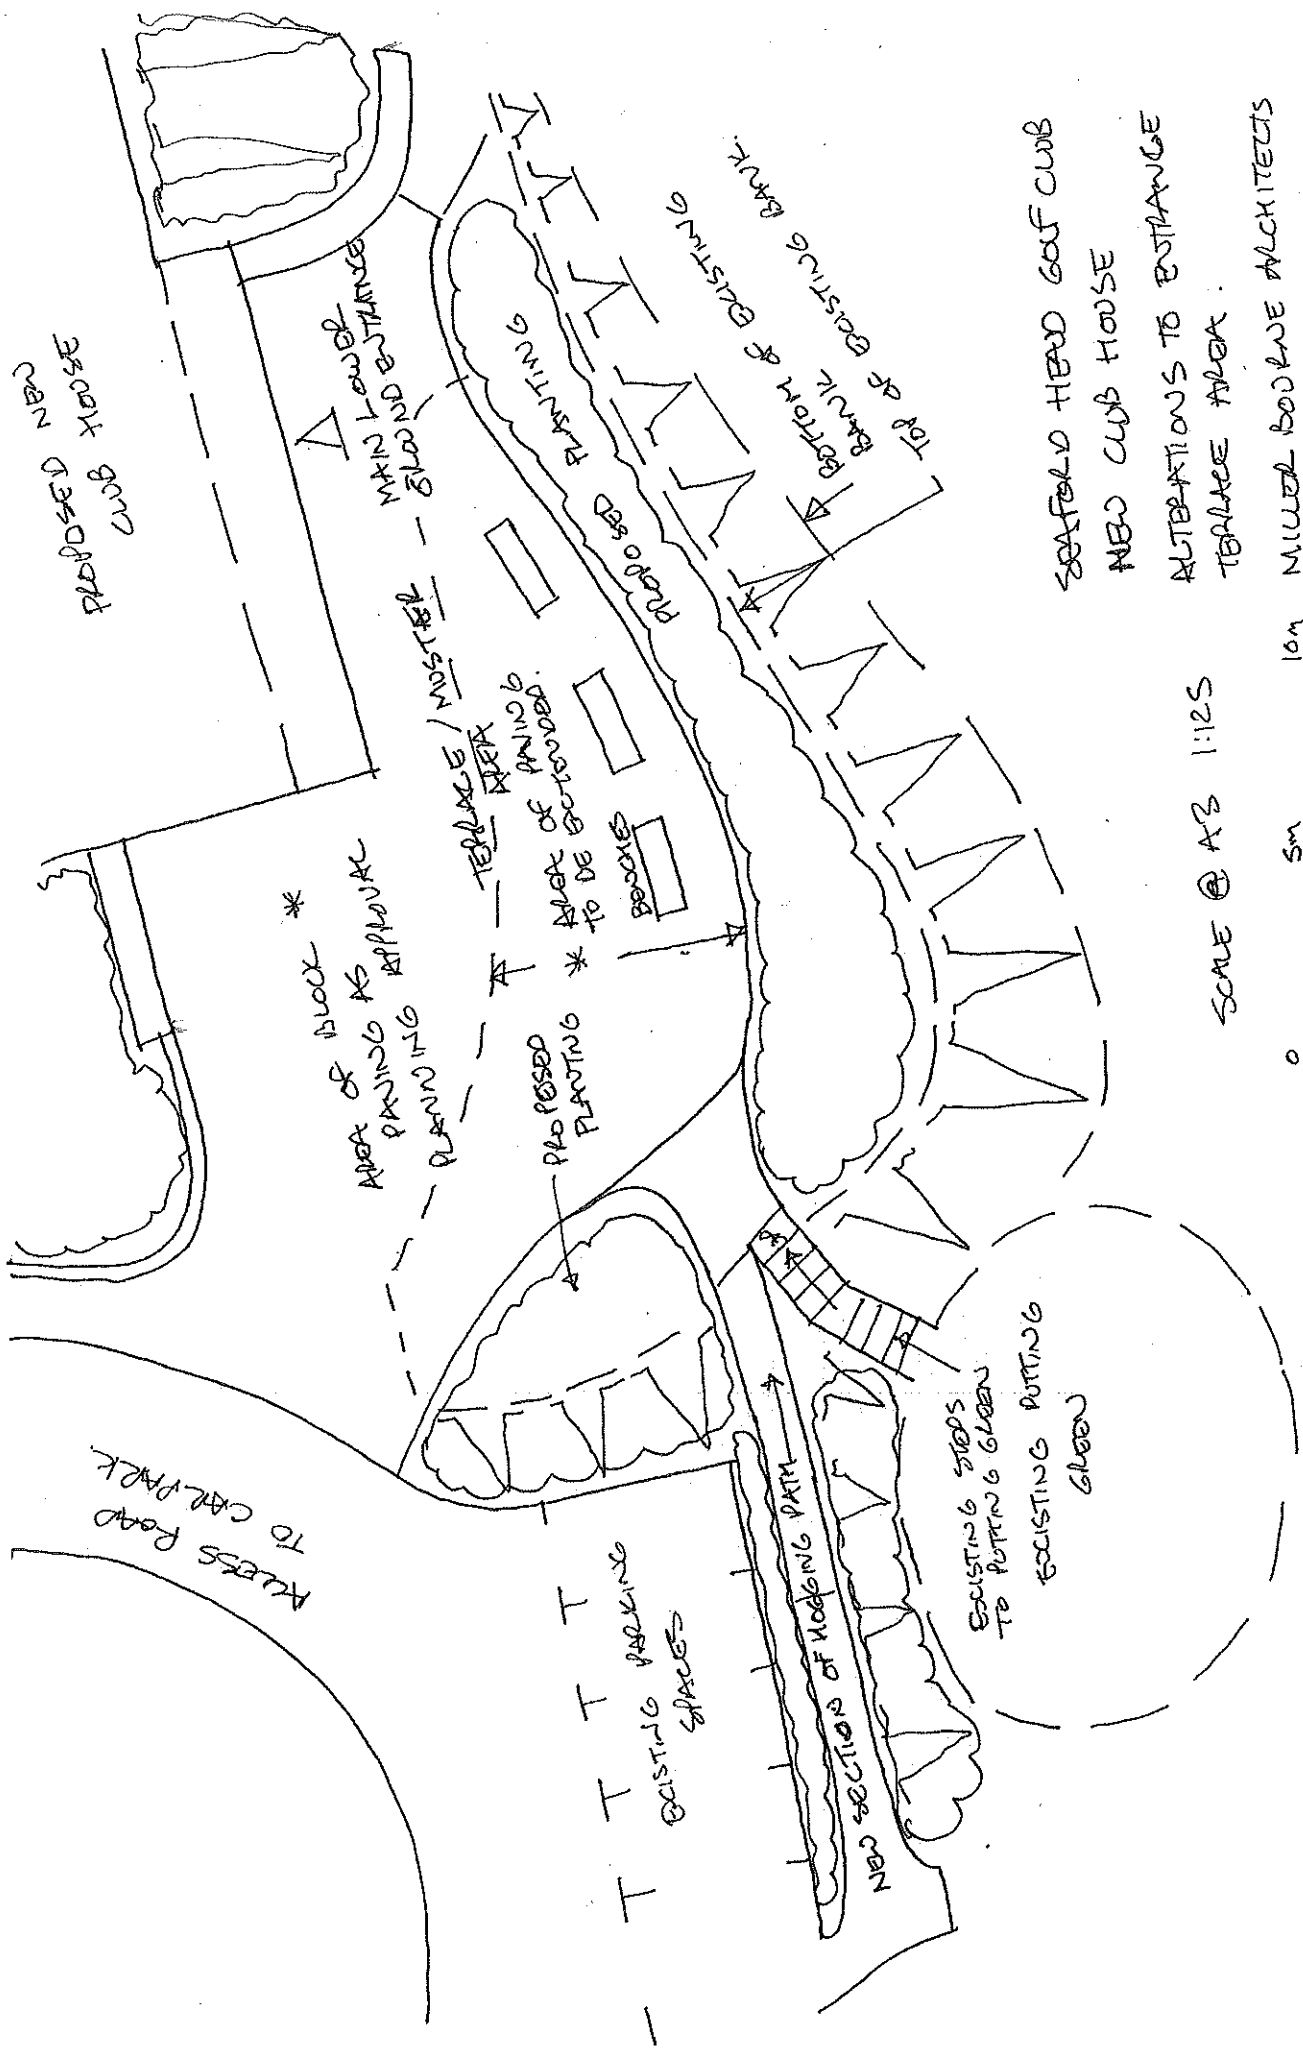 PROPOSED NEW
CLUB HOUSE
MAIN LOWER
GROUND ENTRANCE
TERRACE / MUSTER
AREA
AREA OF BLOCK *
PAVING AS
PLANNING APPROVAL
* AREA OF PAVING
TO BE EXTENDED.
BENCHES
PROPOSED
PLANTING
PROPOSED PLANTING
BOTTOM OF EXISTING
BANK
TOP OF EXISTING BANK.
ACCESS ROAD
TO CAR PARK
EXISTING PARKING
SPACES
NEW SECTION OF HOGGING PATH
EXISTING STEPS
TO PUTTING GREEN
EXISTING PUTTING
GREEN
SEAFORD HEAD GOLF CLUB
NEW CLUB HOUSE
ALTERATIONS TO ENTRANCE
TERRACE AREA.
SCALE @ A3 1:125
0 5m 10m
MILLER BOURNE ARCHITECTS